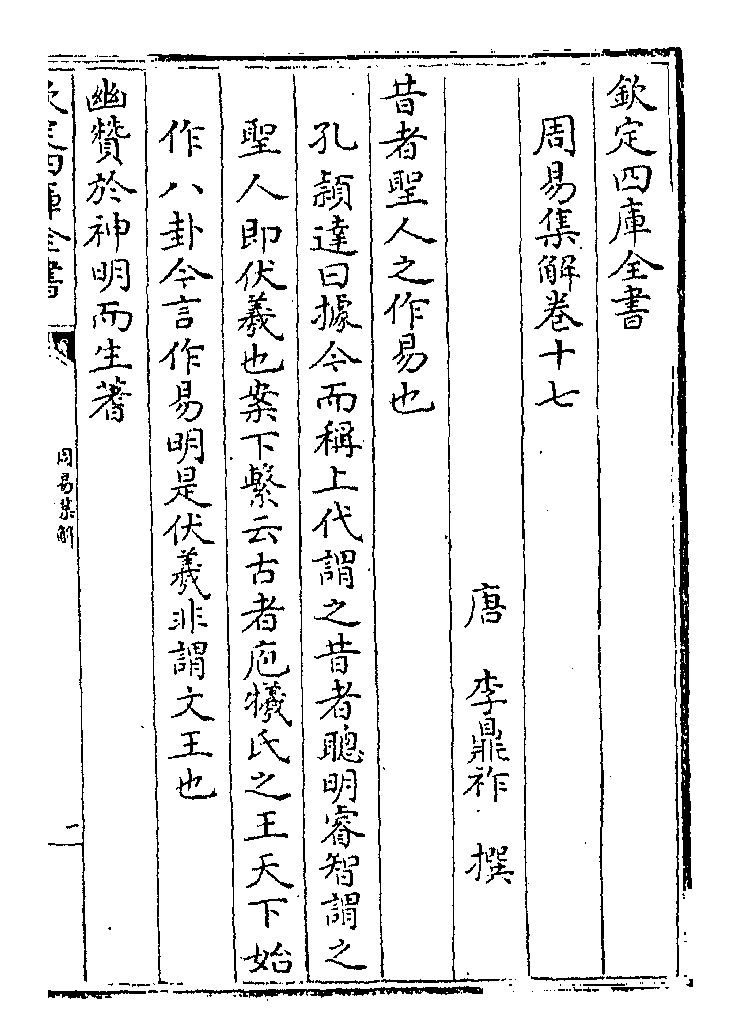 欽定四庫全書
周易集解卷十七
唐 李鼎祚 撰
昔者聖人之作易也
孔頴達曰據今而稱上代謂之昔者聰明睿智謂之
聖人即伏羲也案下繫云古者庖犧氏之王天下始
作八卦今言作易明是伏羲非謂文王也
幽贊於神明而生蓍
欽定四庫全書
周易集解